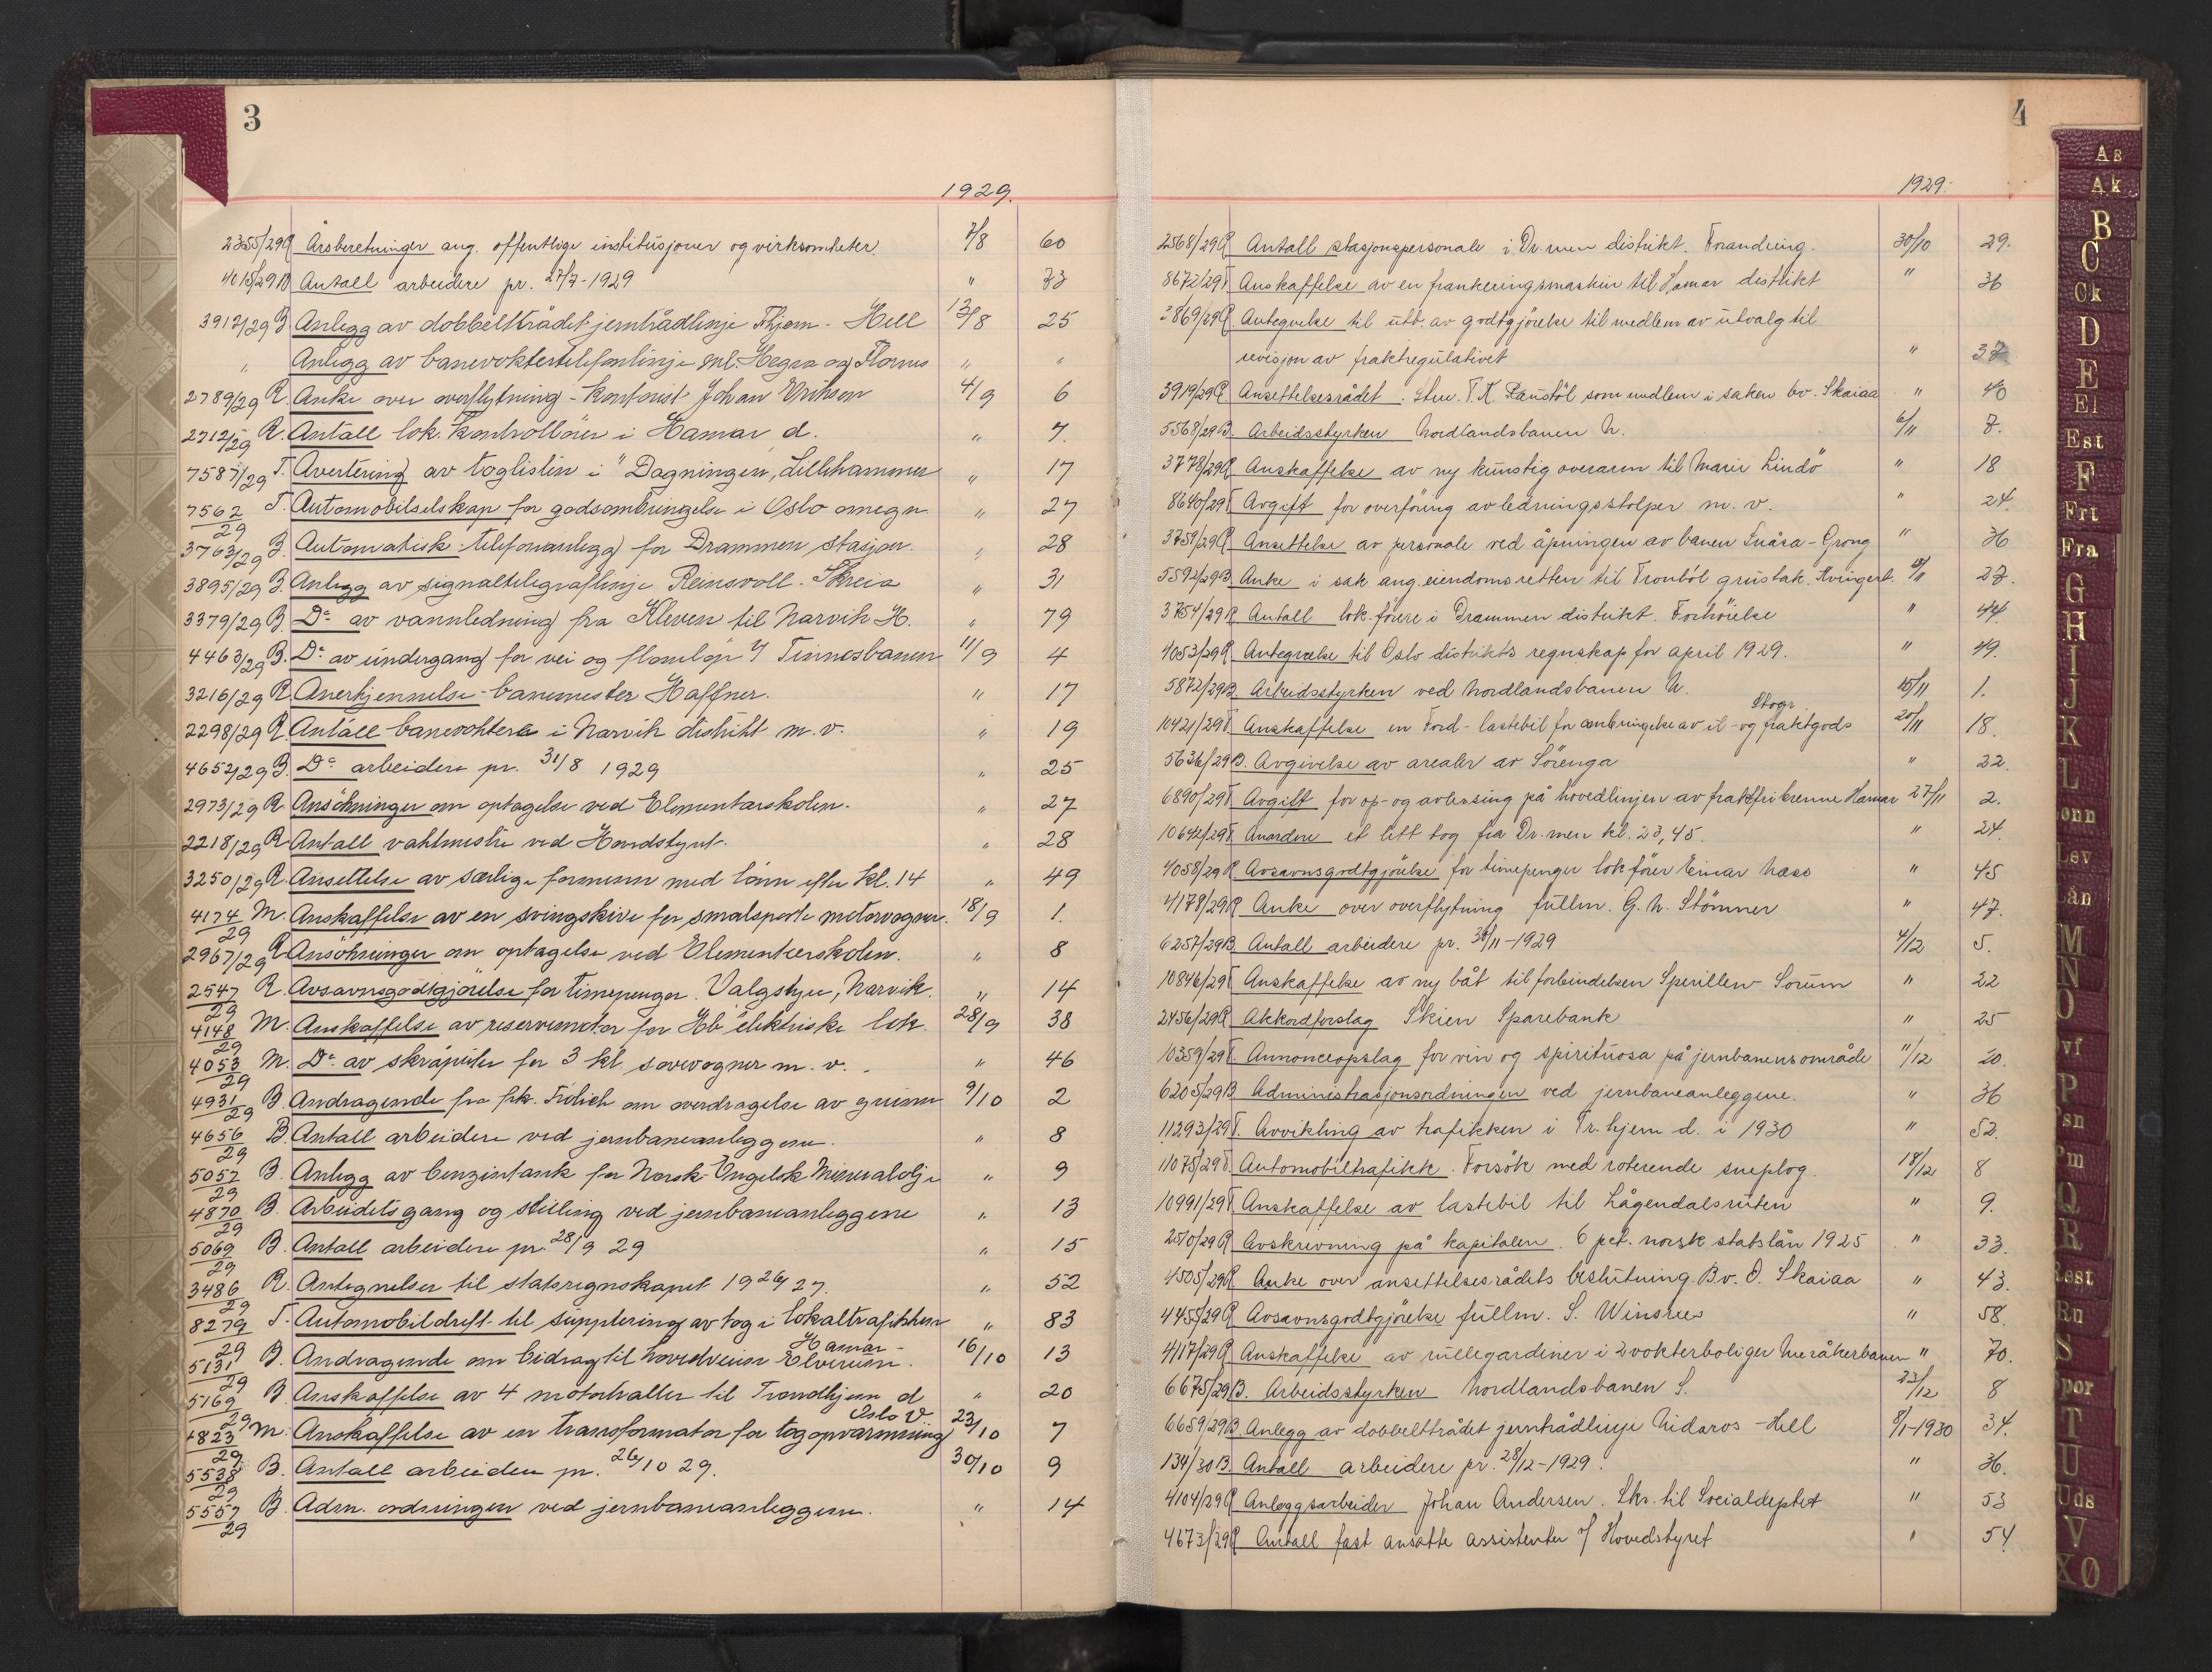 3
1929.
2355/29 R Årsberetninger ang. offentlige institusjoner og virksomheter. 7/8 60
4015/29 B Antall arbeidere pr. 27/7-1929 " 73
3912/29 B. Anlegg av dobbelttrådet jerntrådlinje Thjem. - Hell 13/8 25
" Anlegg av banevoktertelefonlinje ml. Hegra og Flornes " "
2789/29 R. Anke over overflytning - Kontorist Johan Eriksen 4/9 6
2712/29 R. Antall lok. kontrollører i Hamar d. " 7.
7587/29 T. Avertering av toglisten i "Dagningen", Lillehammer " 17
7562/29 T. Automobilselskap for godsombringelse i Oslo omegn " 27
3763/29 B. Automatisk telefonanlegg for Drammen stasjon. " 28
3895/29 B. Anlegg av signaltelegraflinje Reinsvoll - Skreia " 31
3379/29 B. Do av vannledning fra Kleven til Narvik H. " 79
4463/29 B. Do av undergang for vei og flomløp i/ Tinnosbanen 11/9 4
3216/29 R Anerkjennelse - banemester Haffner. " 17
2298/29 R. Antall banevoktere i Narvik distrikt m. v. " 19
4652/29 B. Do arbeidere pr. 31/8 1929 " 25
2973/29 R. Ansökninger om optagelse ved Elementarskolen. " 27
2218/29 R Antall vaktmestre ved Hovedstyret. " 28
3250/29 R. Ansettelse av særlige formenn med lönn efter kl. 14 " 49
4174/29 M. Anskaffelse av en svingskive for smalsporte motorvogner. 18/9 1.
2967/29 R Ansökninger om optagelse ved Elementærskolen. " 8
2547/29 R. Avsavnsgodtgjörelse for timepenger. Valgstyre, Narvik. " 14
4148/29 M. Anskaffelse av reservemotor for Hb elektriske lok. 28/9 38
4053/29 M. Do av skråputer for 3 kl. sovevogner m. v. " 46
4931/29 B. Andragende fra frk. Frölich om overdragelse av grunn 9/10 2
4656/29 B. Antall arbeidere ved jernbaneanleggene. " 8
5057/29 B. Anlegg av benzintank for Norsk-Engelsk Mineralolje " 9
4870/29 B. Arbeidets gang og stilling ved jernbaneanleggene " 13
5069/29 B. Antall arbeidere pr. 28/9 29 " 15
3486/29 R. Antegnelser til statsregnskapet 1926/27. " 52
8279/29 T. Automobildrift til supplering av tog i lokaltrafikken " 83
5131/29 B. Andragende om bidrag til hovedveien Hamar - Elverum. 16/10 13
5169/29 B Anskaffelse av 4 motortraller til Trondhjem d " 20
4823/29 M. Anskaffelse av en transformator for togopvarmning Oslo V 23/10 7
5538/29 B. Antall arbeidere pr. 26/10 29. 30/10 9
5557/29 B. Adm. ordningen ved jernbaneanleggene. " 14
4
1929.
2568/29 R Antall stasjonspersonale i Dr.men distrikt. Forandring. 30/10 29.
8672/29 T Anskaffelse av en frankeringsmaskin til Hamar distrikt " 36
3869/29 R. Antegnelse til utb. av godtgjörelse til medlem av utvalg til
revisjon av fraktregulativet " 37
3919/29 R. Ansettelsesrådet. Stm. T. K. Faustöl som medlem i saken bv. Skaiaa " 40
5568/29 B. Arbeidsstyrken Nordlandsbanen N. 6/11 8.
3778/29 R Anskaffelse av ny kunstig overarm til Marie Lindö " 18
8640/29 T Avgift for overföring av ledningsstolper m. v. " 24.
3759/29 R Ansettelse av personale ved åpningen av banen Snåsa - Grong " 36
5592/29 B. Anke i sak ang. eiendomsretten til Tronböl grustak. Kvingerb. /11 27.
3754/29 R Antall lok.förere i Drammen distrikt. Forhöielse " 44.
4053/29 R Antegnelse til Oslo distrikts regnskap for april 1929. " 49.
5872/29 B. Arbeidsstyrken ved Nordlandsbanen N. 15/11 1.
10421/29 T. Anskaffelse en Ford-lastebil for ombringelse av il- og fraktgods 20/11 18.
5636/29 B. Avgivelse av arealer av Sörenga " 22.
6890/29 T Avgift for op- og avlessing på hovedlinjen av fraktfri brenne Hamar 27/11 2.
10642/29 T. Anordne et lett tog fra Dr.men kl. 23,45. " 24.
4058/29 R Avsavnsgodtgjörelse for timepenger lok.förer Einar Næss " 45
4178/29 R Anke over overflytning fullm. G. N. Stömner " 47.
6257/29 B. Antall arbeidere pr. 30/11-1929 4/12 5.
10846/29 T Anskaffelse av ny båt til forbindelsen Sperillen - Sorum " 22
2456/29 R Akkordforslag Skien Sparebank " 25
10359/29 T. Annonceopslag for vin og spirituosa på jernbanens område 11/12 20.
6205/29 B Administrasjonsordningen ved jernbaneanleggene. " 36
11293/29 T. Avvikling av trafikken i Tr.hjem d. i 1930 " 52.
11075/29 T. Automobiltrafikk. Forsök med roterende sneplog. 18/12 8
10991/29 T. Anskaffelse av lastebil til Lågendalsruten " 9.
2510/29 R Avskrivning på kapitalen. 6 pct. norsk statslån 1925 " 33.
4505/29 R Anke over ansettelsesrådets beslutning Bv. O. Skaiaa " 43.
4455/29 R Avsavnsgodtgjörelse fullm. S. Winsnes " 58.
4117/29 R Anskaffelse av rullegardiner i 2 vokterboliger Meråkerbanen " 70.
6675/29 B. Arbeidsstyrken Nordlandsbanen S. 23/12 8
6659/29 B Anlegg av dobbelttrådet jerntrådlinje Nidaros - Hell 8/1-1930 34.
134/30 B. Antall arbeidere pr. 28/12-1929. " 36.
4104/29 R Anleggsarbeider Johan Andersen. Skr. til Socialdeptet " 53
4673/29 R Antall fast ansatte assistenter i/ Hovedstyret " 54.
As
Ak
B
C
Ck
D
E
El
Est
F
Frt
Fra
G
H
I
J
K
L
önn
Lev
Lån
M
N
O
vf
P
Psn
Pm
Q
R
Rest
Ru
S
Spor
T
U
Uds
V
X Ø